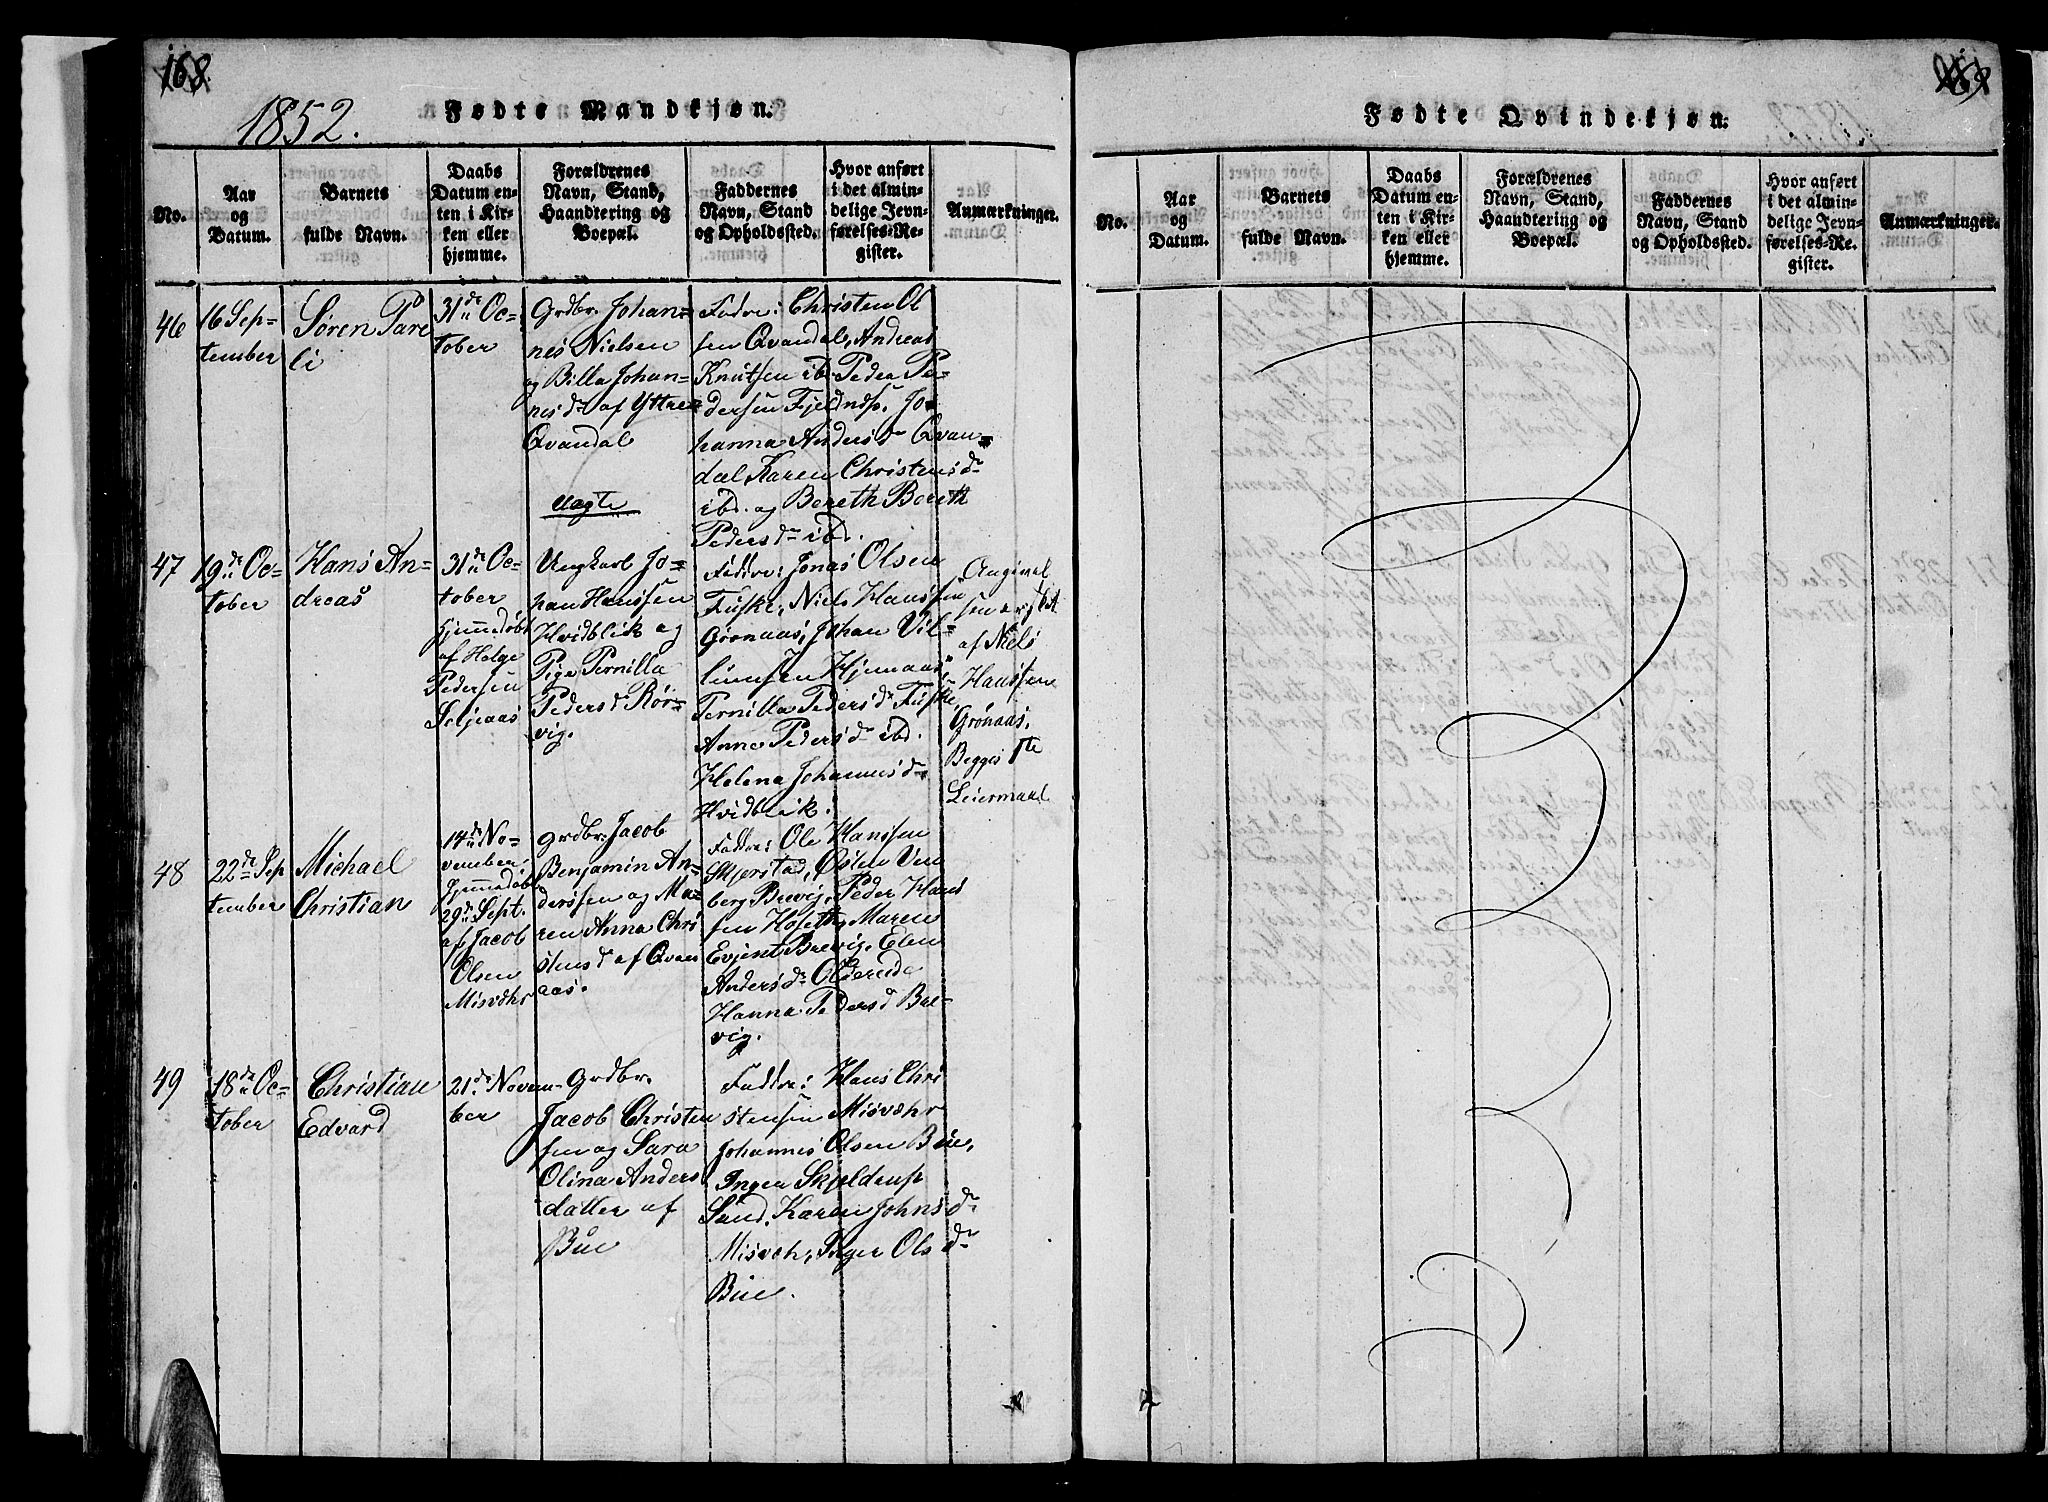 168
1852.
Fødte Mandkjøn.
No.
Aar
og
Datum.
Barnets
fulde Navn.
Daabs
Datum en-
ten i Kir-
ken eller
hjemme.
Forældrenes
Navn, Stand,
Haandtering og
Boepæl.
Faddernes
Navn, Stand
og Opholdssted.
Hvor anført
i det almin-
delige Jevn-
førelses-Re-
gister.
Anmærkninger.
46
16 Sep-
tember
Søren Pare
li
31de Oc-
tober
Grdbr. Johan-
nes Nielsen
og Billa Johan-
nesdr af Yttre
Qvandal
Uægte
Faddre: Christen Ol
sen Qvandal, Andreas
Knutsen ibd. Peder Pe-
dersen Fjeldnds. Jo-
hanna Andersdr Qvan-
dal Karen Christensdr
ibd. og Bereth Bereth
Pedersdr ibd.
47
19de Oc-
tober
Hans An-
dreas
31de Oc-
tober
Hjemmedøbt
af Helge
Pedersen
Seljeaas
Ungkarl Jo-
han Hanssen
Hvidblik og
Pige Pernilla
Pedersd Rør-
vig.
Faddre: Jonas Olsen
Fuske, Niels Hanssen
Grønaas, Johan Vil-
lumsen Hjemaas
Pernilla Pedersdr Fuske,
Anne Pedersdr ibd.
Helena Johannesdr
Hvidblik.
Angivel
sen
af Niels
Hanssen
Grønaas,
Begges 1te
Leiermaal
48
22de Sep
tember
Michael
Christian
14de No-
vember
Hjemmedøbt
29de Sept.
af Jacob
Olsen
Misvæhr
Grdbr. Jacob
Benjamin An-
dersen og Ma-
ren Anna Chri
stensd af Qvan
aas.
Faddre: Ole Hanssen
Skjerstad, Østen Ven
berg Brevig, Peder Hans
sen Hoset, Maren
Evjent Brevig, Elen
Andersdr Oldereide
Hanna Pedersd Bre-
vig.
49
18de Oc-
tober
Christian
Edvard
21de Novem-
ber
Grdbr.
Jacob Christen
sen og Sara
Olina Anders
datter af
Bue
Faddre: Hans Chri
stensen Misvæhr
Johannes Olsen Bue,
Inger Skjeldrup
Sund, Karen Johnsdr
Misveh, Inger Olsdr
Bue.
Fødte Qvindekjøn.
No.
Aar
og
Datum.
Barnets
fulde Navn.
Daabs
Datum en-
ten i Kir-
ken eller
hjemme.
Forældrenes
Navn, Stand,
Haandtering og
Boepæl.
Faddernes
Navn, Stand
og Opholdssted.
Hvor anført
i det almin-
delige Jevn-
førelses-Re-
gister.
Anmærkninger.